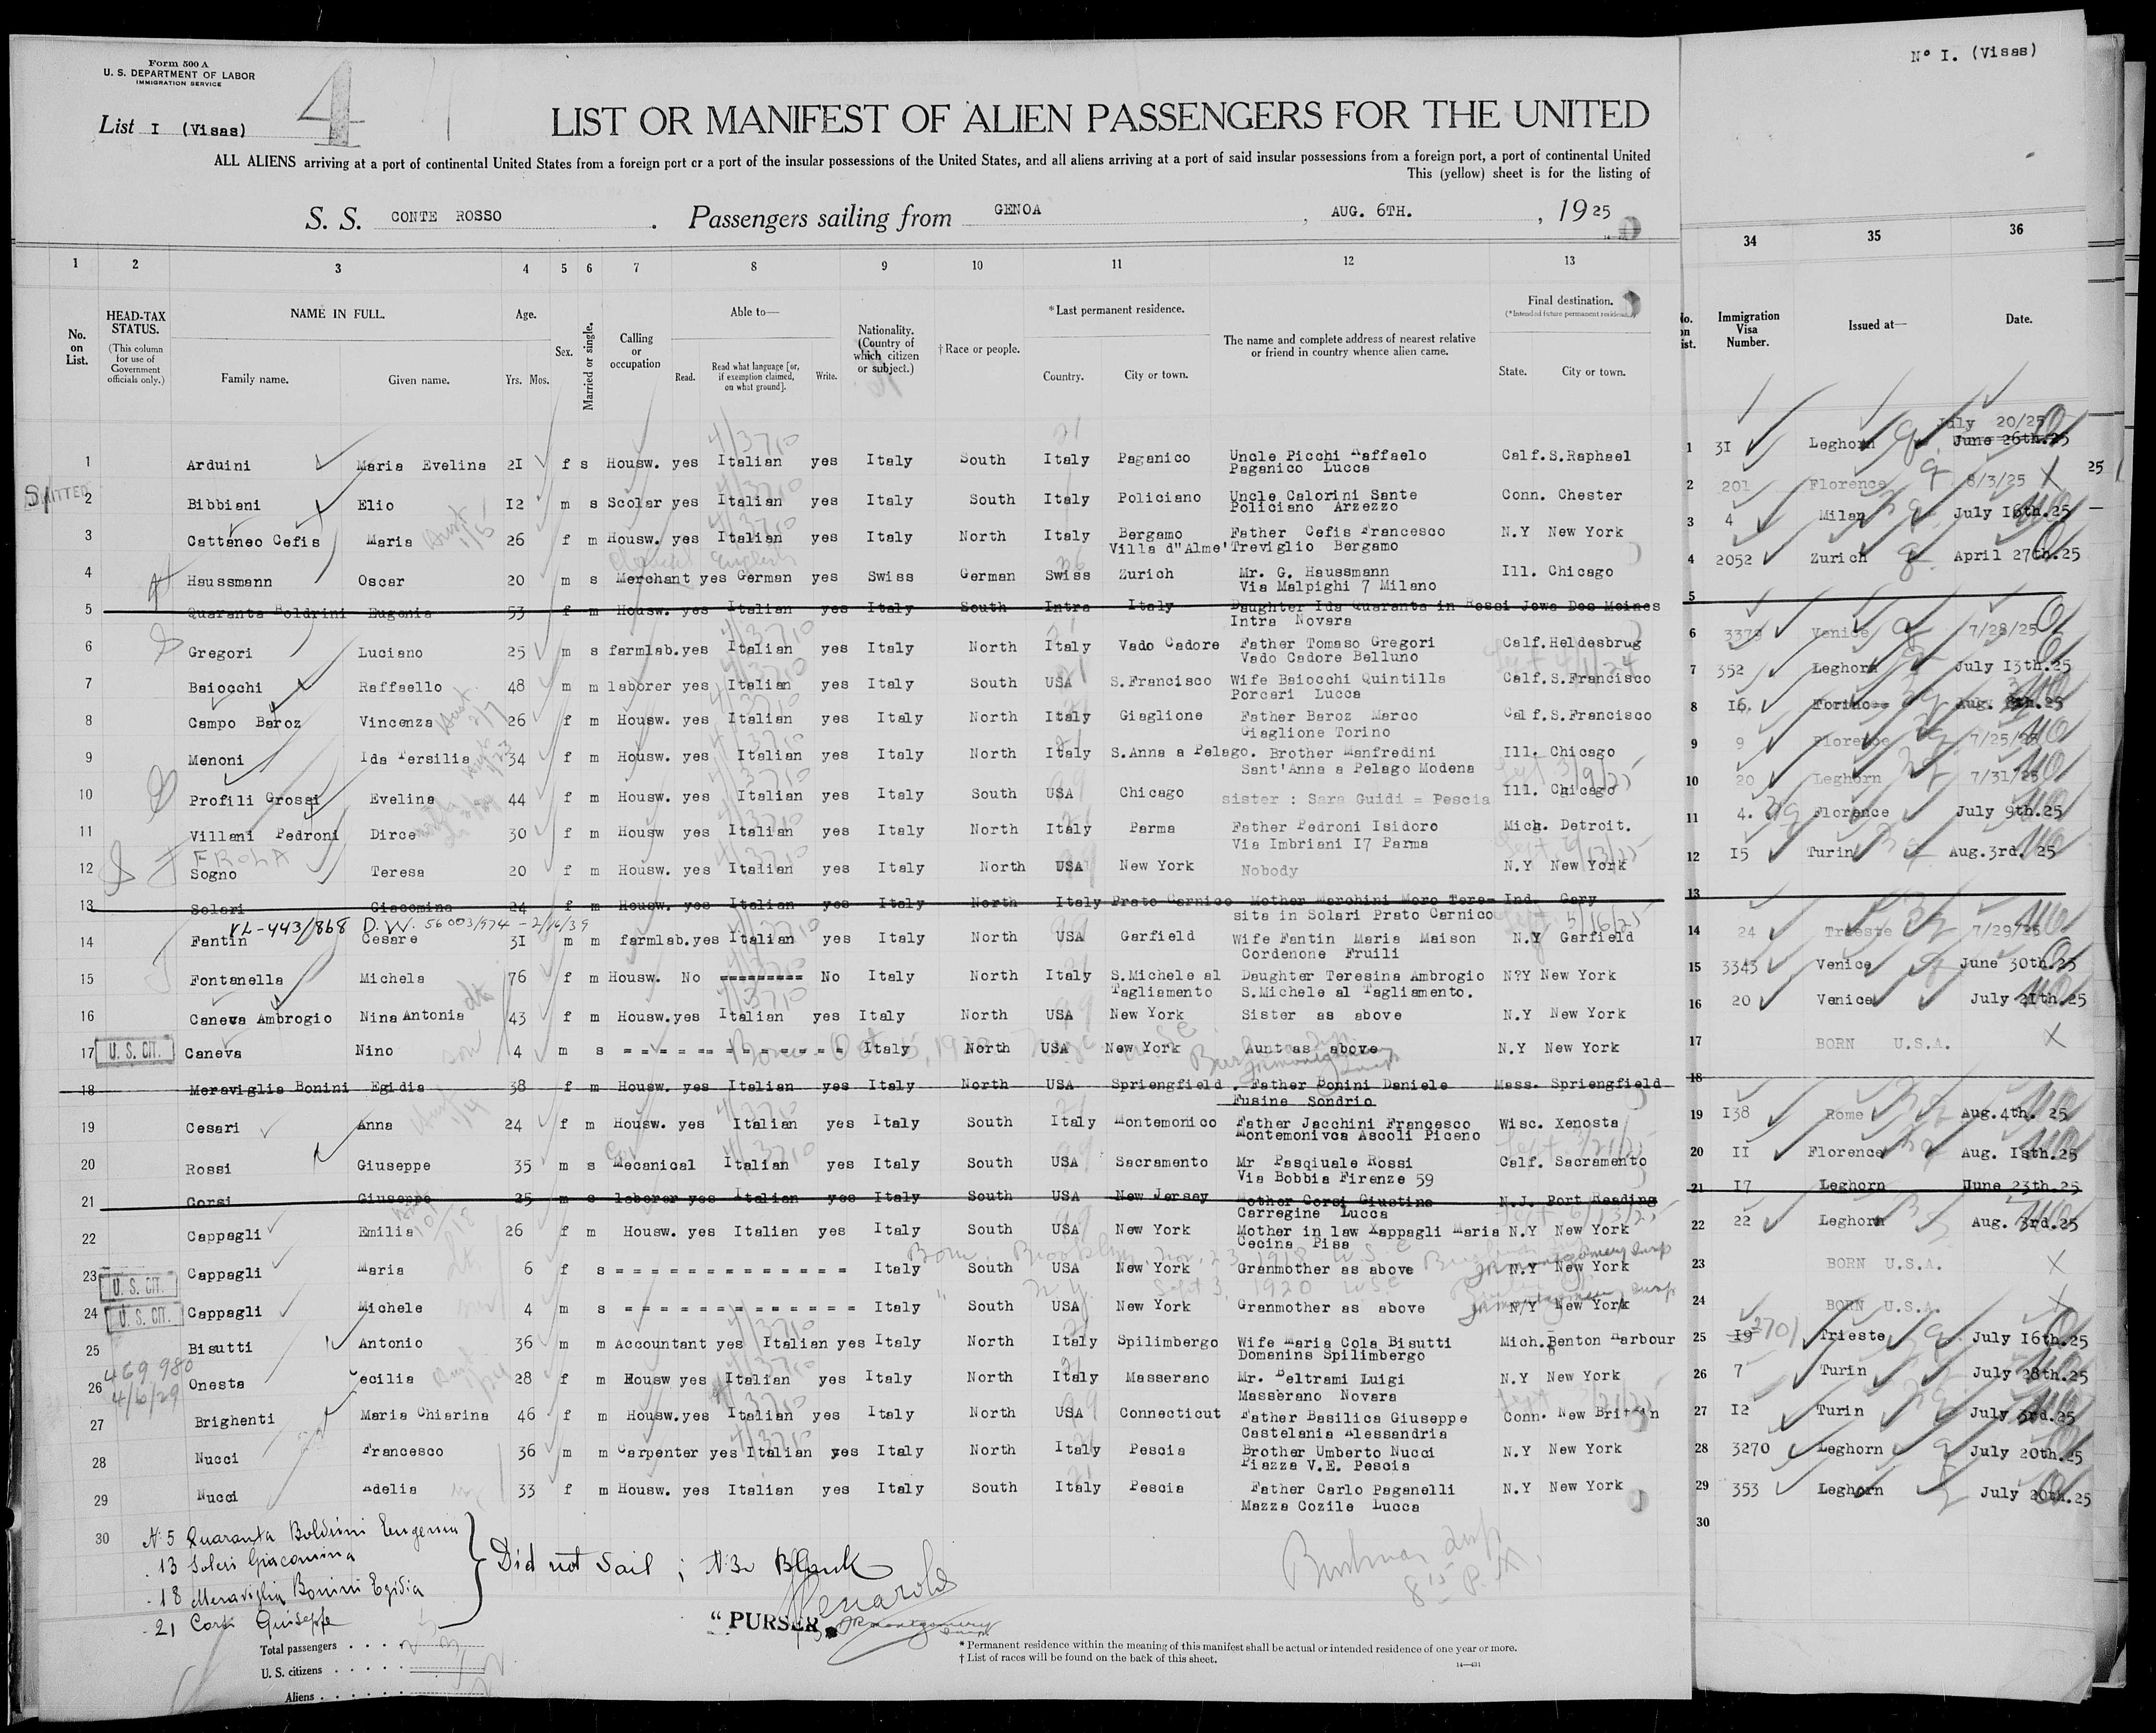 Form 500 A
U. S. DEPARTMENT OF LABOR
IMMIGRATION SERVICE
Nº I. (Visas)
List I (Visas)
4
LIST OR MANIFEST OF ALIEN PASSENGERS FOR THE UNITED
ALL ALIENS arriving at a port of continental United States from a foreign port or a port of the insular possessions of the United States, and all aliens arriving at a port of said insular possessions from a foreign port, a port of continental United
This (yellow) sheet is for the listing of
S. S. CONTE ROSSO . Passengers sailing from GENOA , AUG. 6TH. , 1925
1 2 3 4 5 6 7 8 9 10 11 12 13 34 35 36
No. on List.
HEAD-TAX STATUS.
(This column for use of Government officials only.)
NAME IN FULL.
Family name. Given name.
Age.
Yrs. Mos.
Sex.
Married or single.
Calling or occupation
Able to—
Read. Read what language [or, if exemption claimed, on what ground]. Write.
Nationality. (Country of which citizen or subject.)
†Race or people.
*Last permanent residence.
Country. City or town.
The name and complete address of nearest relative or friend in country whence alien came.
Final destination.
(*Intended future permanent residence.)
State. City or town.
Immigration Visa Number.
Issued at—
Date.
July 20/25
1 Arduini Maria Evelina 2I f s Housw. yes Italian yes Italy South Italy Paganico Uncle Picchi Raffaelo Calf. S.Raphael 1 3I Leghorn June 26th.25
Paganico Lucca
2 Bibbiani Elio I2 m s Scolar yes Italian yes Italy South Italy Policiano Uncle Calorini Sante Conn. Chester 2 201 Florence 8/3/25
Policiano Arzezzo
3 Cattaneo Cefis Maria 26 f m Housw. yes Italian yes Italy North Italy Bergamo Father Cefis Francesco N.Y New York 3 4 Milan July I6th.25
Villa d"Alme' Treviglio Bergamo
4 Haussmann Oscar 20 m s Merchant yes German yes Swiss German Swiss Zurich Mr. G. Haussmann Ill. Chicago 4 2052 Zurich April 27th.25
Via Malpighi 7 Milano
5 Quaranta Boldrini Eugenia 53 f m Housw. yes Italian yes Italy South Intra Italy Daughter Ida Quaranta in Rossi Jowa Des Moines 5
Intra Novara
6 Gregori Luciano 25 m s farmlab. yes Italian yes Italy North Italy Vado Cadore Father Tomaso Gregori Calf. Heldesbrug 6 3379 Venice 7/28/25
Vado Cadore Belluno
7 Baiocchi Raffaello 48 m m laborer yes Italian yes Italy South USA S.Francisco Wife Baiocchi Quintilla Calf. S.Francisco 7 352 Leghorn July I3th.25
Porcari Lucca
8 Campo Baroz Vincenza 26 f m Housw. yes Italian yes Italy North Italy Giaglione Father Baroz Marco Calf. S.Francisco 8 I6. Aug.
Giaglione Torino
9 Menoni Ida Tersilia 34 f m Housw. yes Italian yes Italy North Italy S.Anna a Pelago. Brother Manfredini Ill. Chicago 9 9 Florence 7/25/25
Sant'Anna a Pelago Modena
10 Profili Grossi Evelina 44 f m Housw. yes Italian yes Italy South USA Chicago sister : Sara Guidi = Pescia Ill. Chicago 10 20 Leghorn 7/31/25
11 Villani Pedroni Dirce 30 f m Housw yes Italian yes Italy North Italy Parma Father Pedroni Isidoro Mich. Detroit. 11 4. Florence July 9th.25
Via Imbriani I7 Parma
FROLA
12 Sogno Teresa 20 f m Housw. yes Italian yes Italy North USA New York Nobody N.Y New York 12 I5 Turin Aug.3rd. 25
13 Solari Giacomina 24 f m Housw. yes Italian yes Italy North Italy Prato Carnico Mother Marchini Moro Tere- Ind. Gary 13
sita in Solari Prato Carnico
VL-443/868 D.W. 56003/974 - 2/16/39
14 Fantin Cesare 3I m m farmlab. yes Italian yes Italy North USA Garfield Wife Fantin Maria Maison N.Y Garfield 14 24 Trieste 7/29/25
Cordenone Fruili
15 Fontanella Michela 76 f m Housw. No ========= No Italy North Italy S.Michele al Daughter Teresina Ambrogio N?Y New York 15 3343 Venice June 30th.25
Tagliamento S.Michele al Tagliamento.
16 Caneva Ambrogio Nina Antonia 43 f m Housw. yes Italian yes Italy North USA New York Sister as above N.Y New York 16 20 Venice July 2Ith.25
17 U. S. CIT. Caneva Nino 4 m s = = = = = = = = = = = Italy North USA New York Aunt as above N.Y New York 17 BORN U.S.A.
18 Meraviglia Bonini Egidia 38 f m Housw. yes Italian yes Italy North USA Springfield . Father Bonini Daniele Mass. Springfield 18
Fusine Sondrio
19 Cesari Anna 24 f m Housw. yes Italian yes Italy South Italy Montemonico Father Jacchini Francesco Wisc. Xenosta 19 I38 Rome Aug.4th. 25
Montemonivca Ascoli Piceno
20 Rossi Giuseppe 35 m s Mecanical Italian yes Italy South USA Sacramento Mr Pasqiuale Rossi Calf. Sacramento 20 II Florence Aug. Isth.25
Via Bobbia Firenze 59
21 Corsi Giuseppe 25 m s laborer yes Italian yes Italy South USA New Jersey Mother Corsi Giustina N.J. Port Reading 21 I7 Leghorn June 23th.25
Carregine Lucca
22 Cappagli Emilia 26 f m Housw. yes Italian yes Italy South USA New York Mother in law Kappagli Maria N.Y New York 22 22 Leghorn Aug. 3rd.25
Cecina Pisa
23 U. S. CIT. Cappagli Maria 6 f s = = = = = = = = = = = = Italy South USA New York Granmother as above N.Y New York 23 BORN U.S.A.
24 U. S. CIT. Cappagli Michele 4 m s = = = = = = = = = = = = Italy South USA New York Granmother as above N/Y New York 24 BORN U.S.A.
25 Bisutti Antonio 36 m m Accountant yes Italian yes Italy North Italy Spilimbergo Wife Maria Cola Bisutti Mich. Benton Harbour 25 I9 2701 Trieste July I6th.25
Domanins Spilimbergo
469 980
4/6/29
26 Onesta Cecilia 28 f m Housw yes Italian yes Italy North Italy Masserano Mr. Beltrami Luigi N.Y New York 26 7 Turin July 28th.25
Masserano Novara
27 Brighenti Maria Chiarina 46 f m Housw. yes Italian yes Italy North USA Connecticut Father Basilica Giuseppe Conn. New Britain 27 I2 Turin July 3rd.25
Castelania Alessandria
28 Nucci Francesco 36 m m Carpenter yes Italian yes Italy North Italy Pescia Brother Umberto Nucci N.Y New York 28 3270 Leghorn July 20th.25
Piazza V.E. Pescia
29 Nucci Adelia 33 f m Housw. yes Italian yes Italy South Italy Pescia Father Carlo Paganelli N.Y New York 29 353 Leghorn July 20th.25
Mazza Cozile Lucca
30 30
N. 5 Quaranta Boldrini Eugenia
. 13 Solari Giacomina
. 18 Meraviglia Bonini Egidia
. 21 Corsi Guiseppe
Did not sail ; N. 30 Blank
"PURSER
Total passengers . . . .
U. S. citizens . . . . .
Aliens . . . . . .
* Permanent residence within the meaning of this manifest shall be actual or intended residence of one year or more.
† List of races will be found on the back of this sheet.
14—431